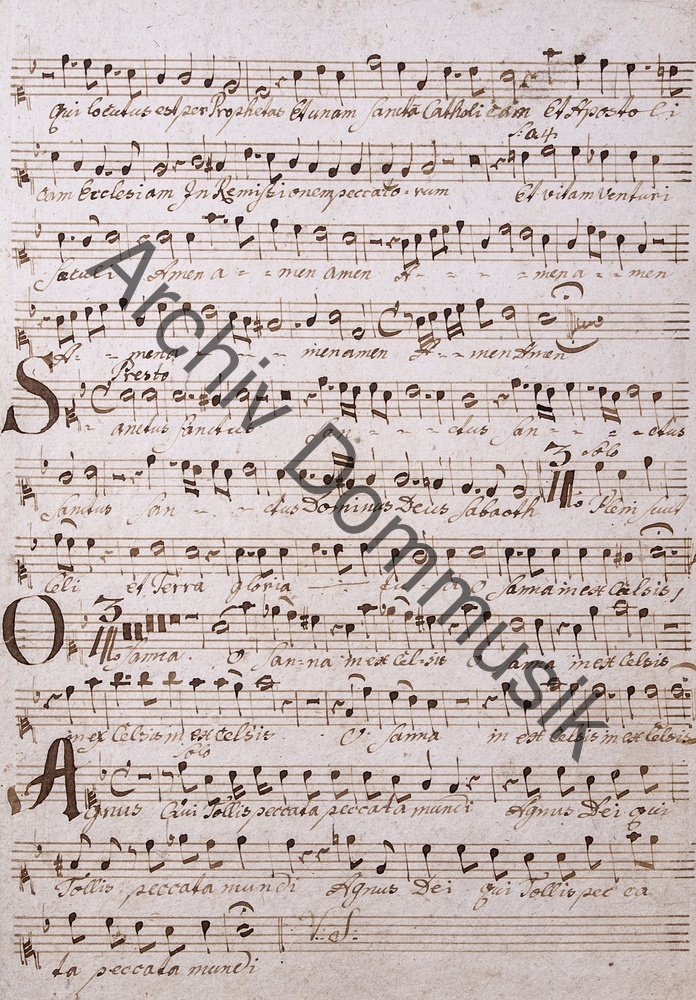 Qui locutus est per Prophetas Et unam Sancta Catholi cam Et Aposto li
S: a 4
cam Ecclesiam In Remissionem peccato - rum Et vitam Venturi
Sæculi Amen a - - men amen A - - - - mena - - men
A - - mena - - - - men amen A - - men Amen
Presto
S - anctus Sanctus San - - - ctus San - - - ctus
3 Solo
Sanctus San - - - ctus Dominus Deus Sabaoth Pleni sunt
Celi et Terra gloria tu - a O Sanna in ex Celsis,
3
O Sanna. O San-na in ex Cel-sis O Sanna in ex Celsis
in ex Celsis in ex Celsis. O Sanna in ex Celsis in ex Celsis
Solo
Agnus Qui Tollis peccata peccata mundi Agnus Dei qui
Tollis peccata mundi Agnus Dei qui Tollis pec ca
V: S:
ta peccata mundi
Archiv Dommusik